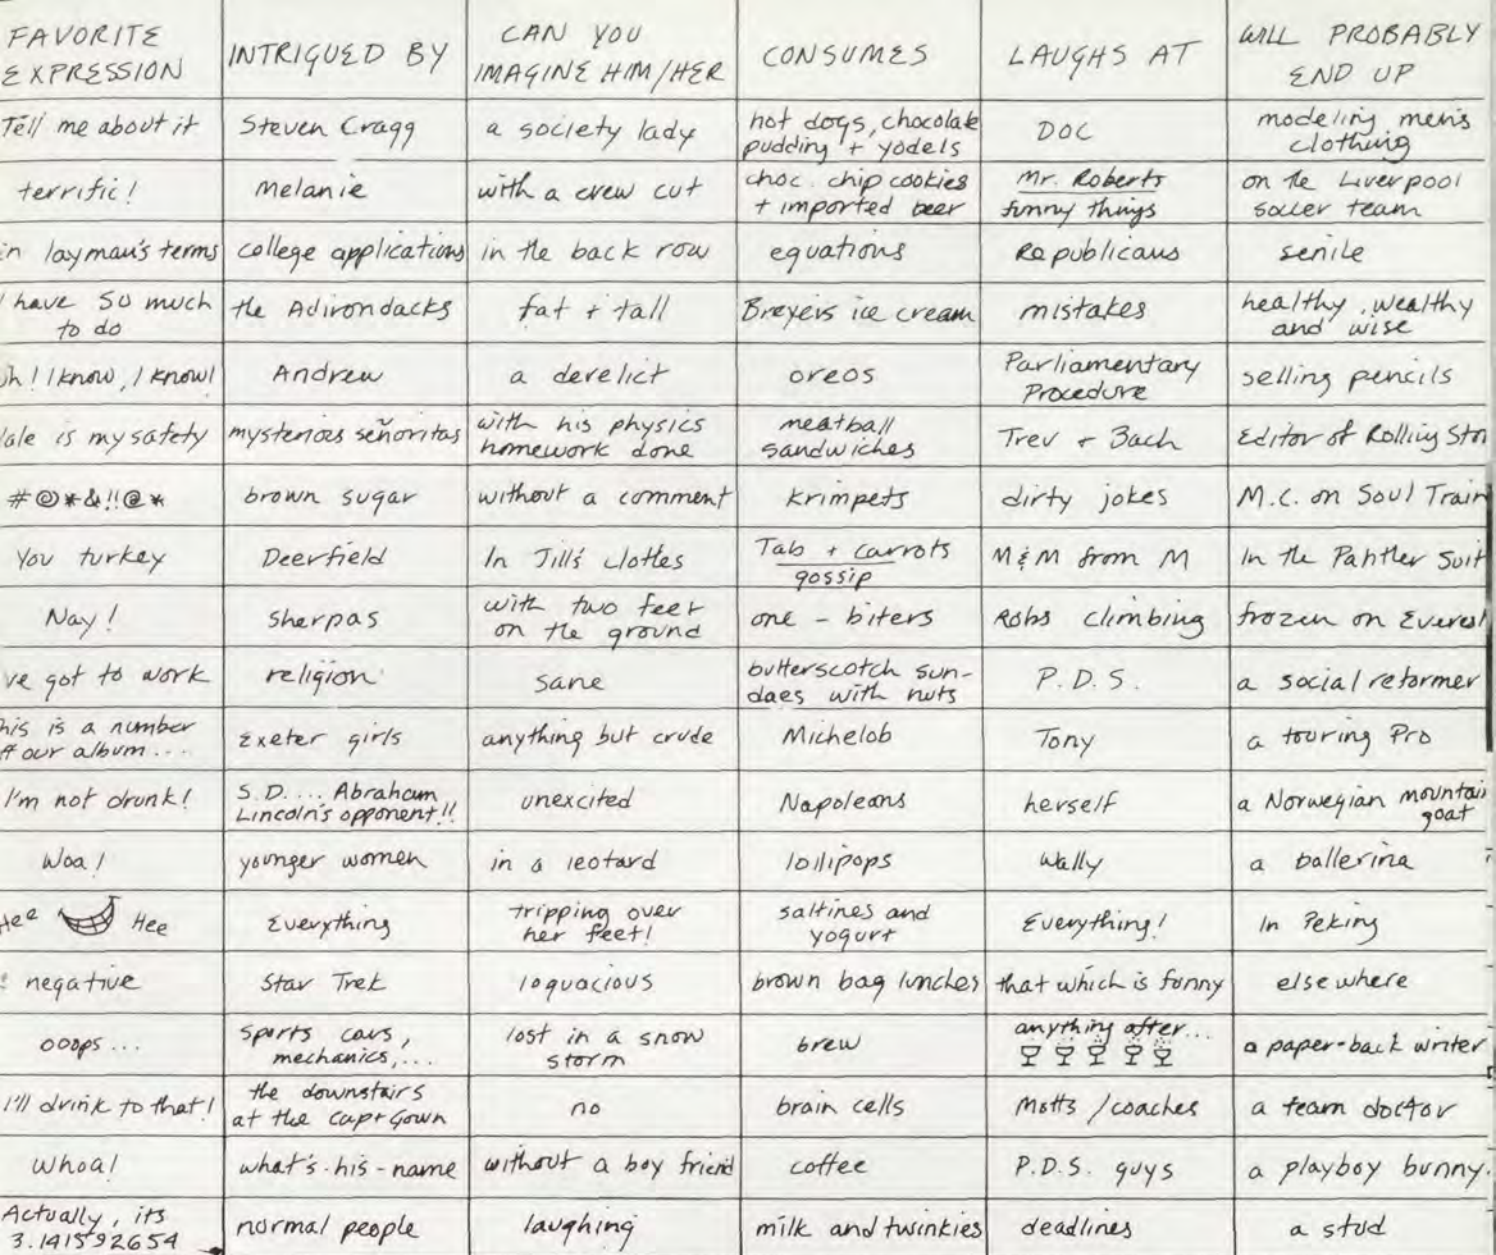 FAVORITE EXPRESSION | INTRIGUED BY | CAN YOU IMAGINE HIM/HER | CONSUMES | LAUGHS AT | WILL PROBABLY END UP
Tell me about it | Steven Cragg | a society lady | hot dogs, chocolate pudding + yodels | DOC | modeling men's clothing
terrific! | Melanie | with a crew cut | choc. chip cookies + imported beer | Mr. Roberts funny things | on the Liverpool soccer team
in layman's terms | college applications | in the back row | equations | Republicans | senile
I have so much to do | the Adirondacks | fat + tall | Breyers ice cream | mistakes | healthy, wealthy and wise
oh! I know, I know! | Andrew | a derelict | oreos | Parliamentary Procedure | selling pencils
Yale is my safety | mysterios señoritas | with his physics homework done | meatball sandwiches | Trev + Bach | Editor of Rolling Ston
#@*&!!@* | brown sugar | without a comment | Krimpets | dirty jokes | M.C. on Soul Train
You turkey | Deerfield | In Jill's clothes | Tab + carrots gossip | M&M from M | In the Panther Suit
Nay! | Sherpas | with two feet on the ground | one - biters | Robs climbing | frozen on Everest
've got to work | religion | sane | butterscotch sun-daes with nuts | P.D.S. | a social reformer
This is a number off our album... | Exeter girls | anything but crude | Michelob | Tony | a touring Pro
I'm not drunk! | S.D.... Abraham Lincoln's opponent!! | unexcited | Napoleons | herself | a Norwegian mountain goat
Woa! | younger women | in a leotard | lollipops | Wally | a ballerina
Hee Hee | Everything | tripping over her feet! | saltines and yogurt | Everything! | In Peking
negative | Star Trek | loquacious | brown bag lunches | that which is funny | elsewhere
ooops... | sports cars, mechanics,... | lost in a snow storm | brew | anything after... | a paper-back writer
I'll drink to that! | the downstairs at the Cap + Gown | no | brain cells | Motts / coaches | a team doctor
Whoa! | what's-his-name | without a boy friend | coffee | P.D.S. guys | a playboy bunny.
Actually, its 3.141592654 | normal people | laughing | milk and twinkies | deadlines | a stud